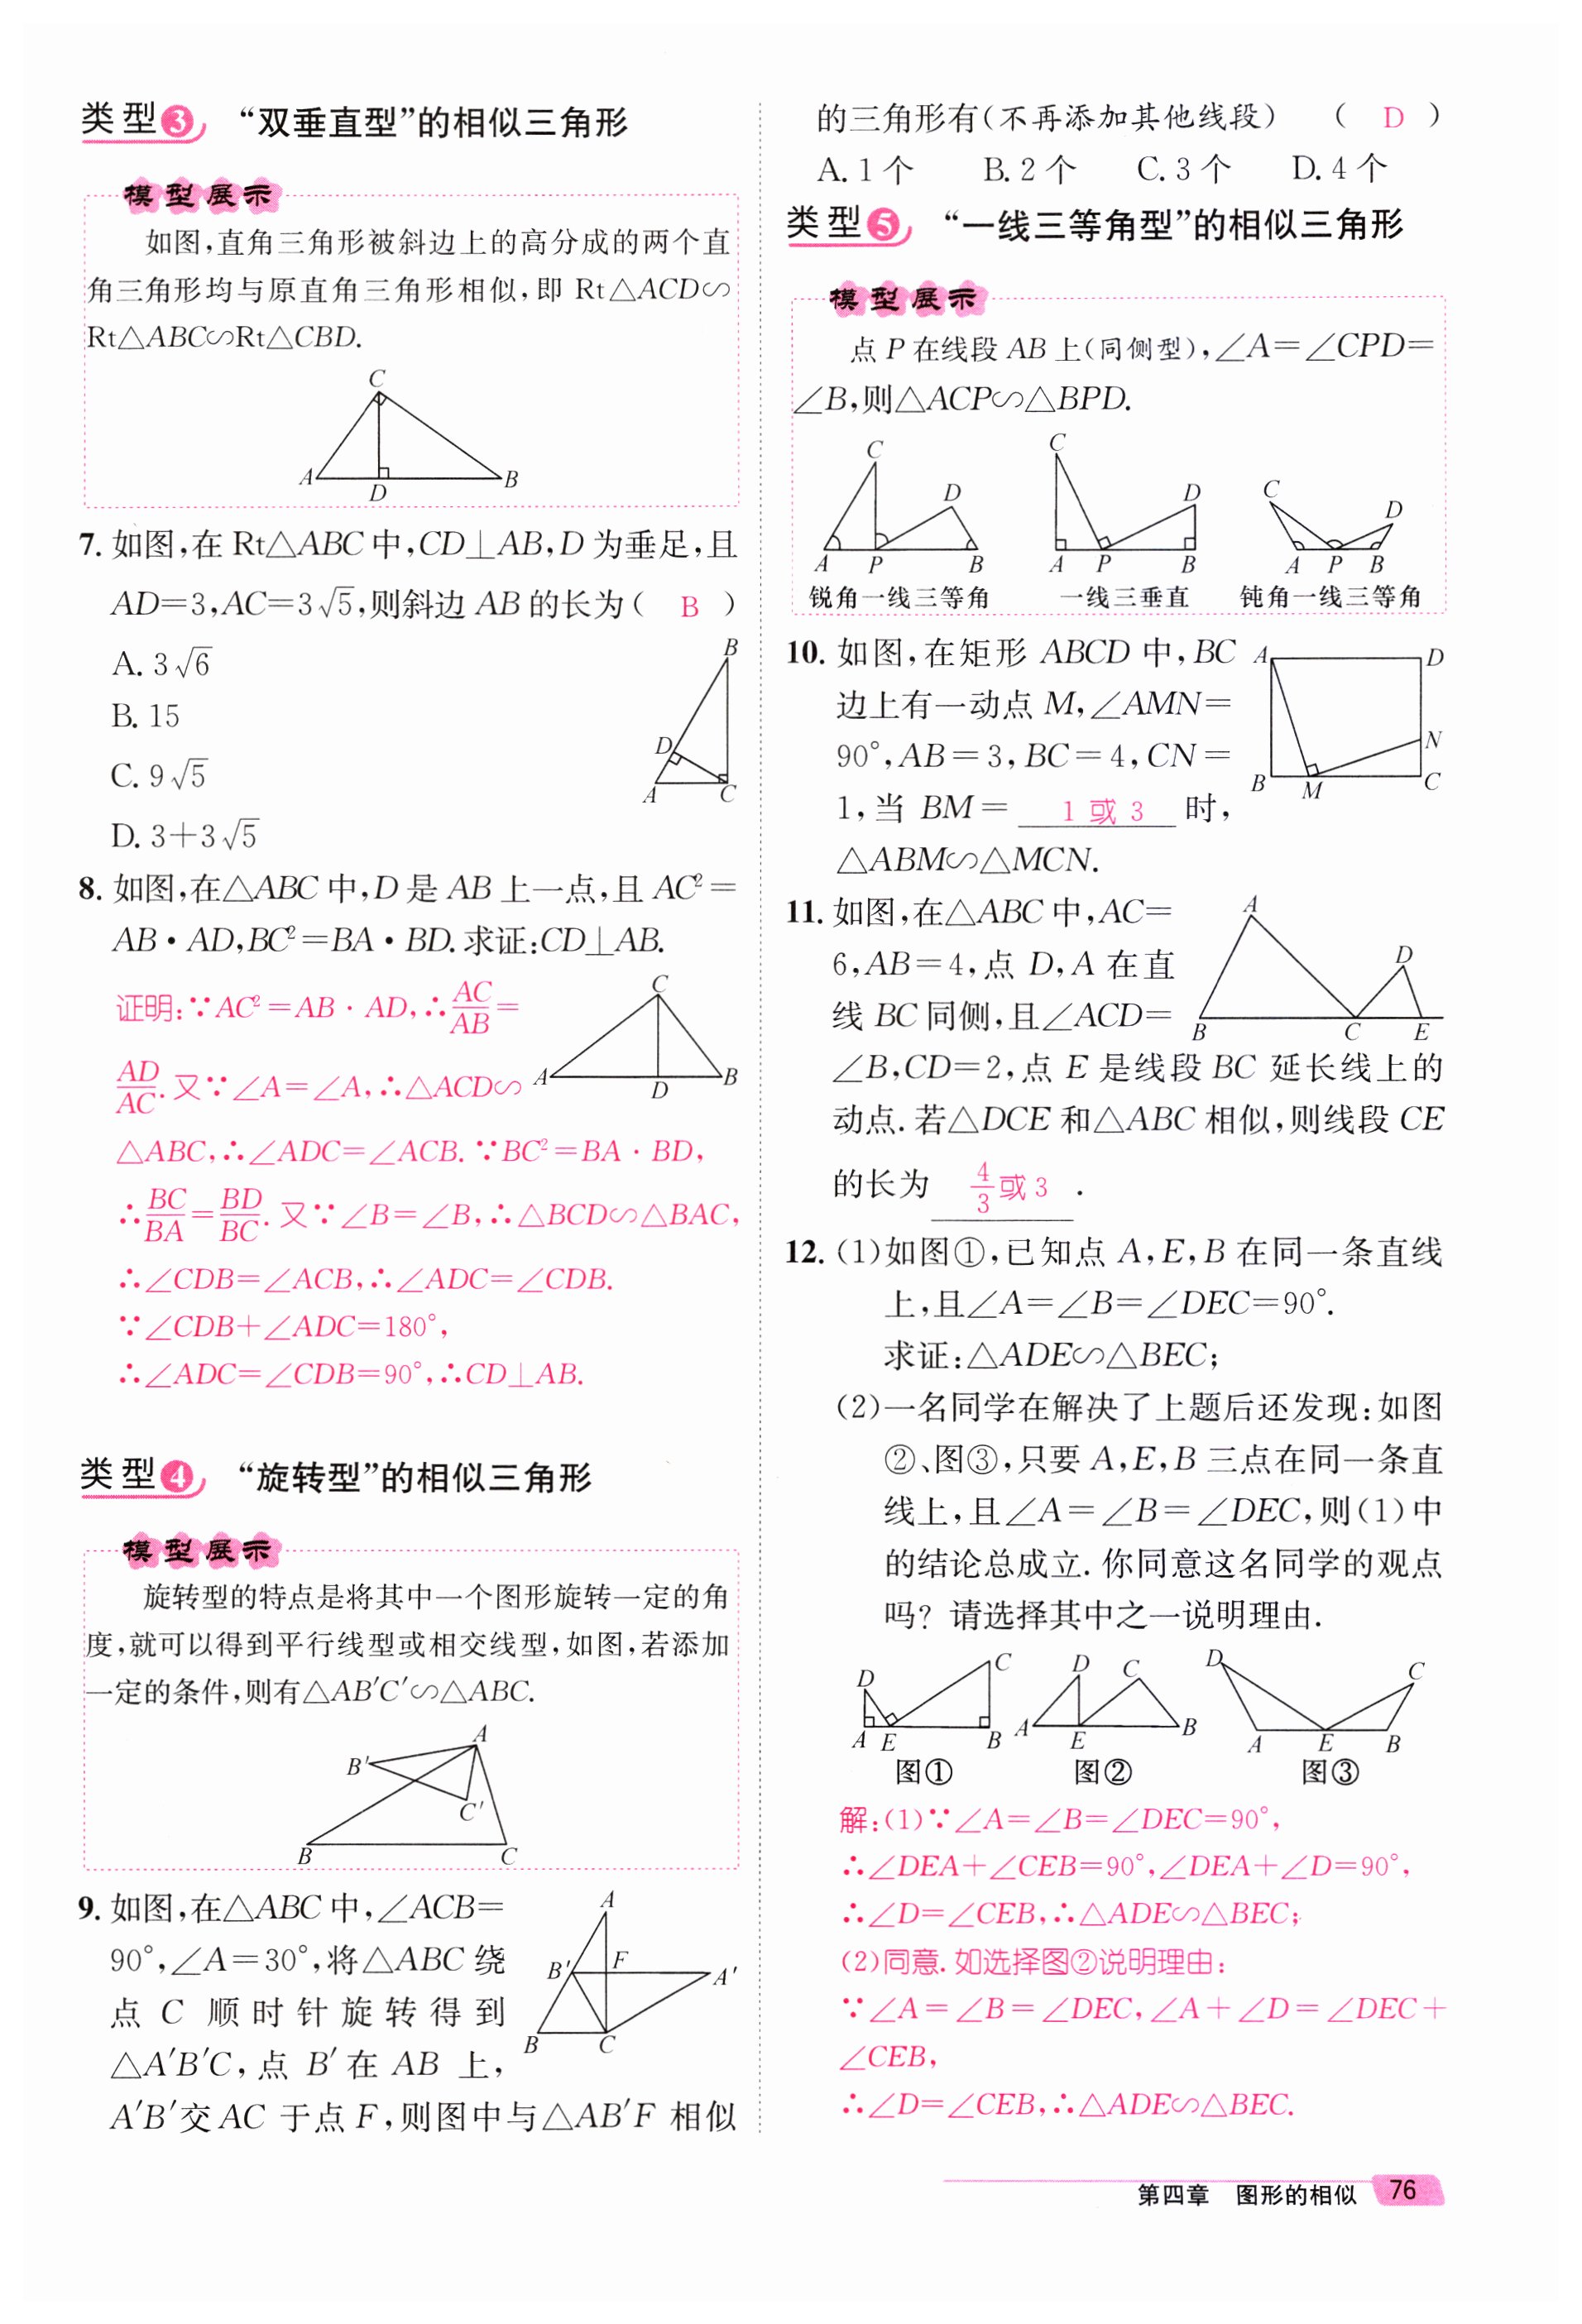 类型3 “双垂直型”的相似三角形
模型展示
如图,直角三角形被斜边上的高分成的两个直
角三角形均与原直角三角形相似,即 Rt△ACD∽
Rt△ABC∽Rt△CBD.
C
A
D
B
7. 如图,在 Rt△ABC 中,CD⊥AB,D 为垂足,且
AD=3,AC=3√5,则斜边 AB 的长为( B )
A. 3√6
B. 15
C. 9√5
D. 3+3√5
B
D
A
C
8. 如图,在△ABC 中,D 是 AB 上一点,且 AC²=
AB·AD,BC²=BA·BD. 求证:CD⊥AB.
证明:∵AC²=AB·AD,∴AC/AB=
AD/AC. 又∵∠A=∠A,∴△ACD∽
△ABC,∴∠ADC=∠ACB. ∵BC²=BA·BD,
∴BC/BA=BD/BC. 又∵∠B=∠B,∴△BCD∽△BAC,
∴∠CDB=∠ACB,∴∠ADC=∠CDB.
∵∠CDB+∠ADC=180°,
∴∠ADC=∠CDB=90°,∴CD⊥AB.
C
A
D
B
类型4 “旋转型”的相似三角形
模型展示
旋转型的特点是将其中一个图形旋转一定的角
度,就可以得到平行线型或相交线型,如图,若添加
一定的条件,则有△AB′C′∽△ABC.
A
B′
C′
B
C
9. 如图,在△ABC 中,∠ACB=
90°,∠A=30°,将△ABC 绕
点 C 顺时针旋转得到
△A′B′C,点 B′在 AB 上,
A′B′交 AC 于点 F,则图中与△AB′F 相似
A
B′
F
A′
B
C
的三角形有(不再添加其他线段) ( D )
A. 1 个 B. 2 个 C. 3 个 D. 4 个
类型5 “一线三等角型”的相似三角形
模型展示
点 P 在线段 AB 上(同侧型),∠A=∠CPD=
∠B,则△ACP∽△BPD.
C
D
A P B
锐角一线三等角
C
D
A P B
一线三垂直
C
D
A P B
钝角一线三等角
10. 如图,在矩形 ABCD 中,BC
边上有一动点 M,∠AMN=
90°,AB=3,BC=4,CN=
1,当 BM= 1 或 3 时,
△ABM∽△MCN.
A
D
N
B
M
C
11. 如图,在△ABC 中,AC=
6,AB=4,点 D,A 在直
线 BC 同侧,且∠ACD=
∠B,CD=2,点 E 是线段 BC 延长线上的
动点. 若△DCE 和△ABC 相似,则线段 CE
的长为 4/3或 3 .
A
D
B
C
E
12. (1)如图①,已知点 A,E,B 在同一条直线
上,且∠A=∠B=∠DEC=90°.
求证:△ADE∽△BEC;
(2)一名同学在解决了上题后还发现:如图
②、图③,只要 A,E,B 三点在同一条直
线上,且∠A=∠B=∠DEC,则(1)中
的结论总成立. 你同意这名同学的观点
吗? 请选择其中之一说明理由.
D
C
A E B
图①
D C
A E B
图②
D
C
A E B
图③
解:(1)∵∠A=∠B=∠DEC=90°,
∴∠DEA+∠CEB=90°,∠DEA+∠D=90°,
∴∠D=∠CEB,∴△ADE∽△BEC;
(2)同意. 如选择图②说明理由:
∵∠A=∠B=∠DEC,∠A+∠D=∠DEC+
∠CEB,
∴∠D=∠CEB,∴△ADE∽△BEC.
第四章 图形的相似 76